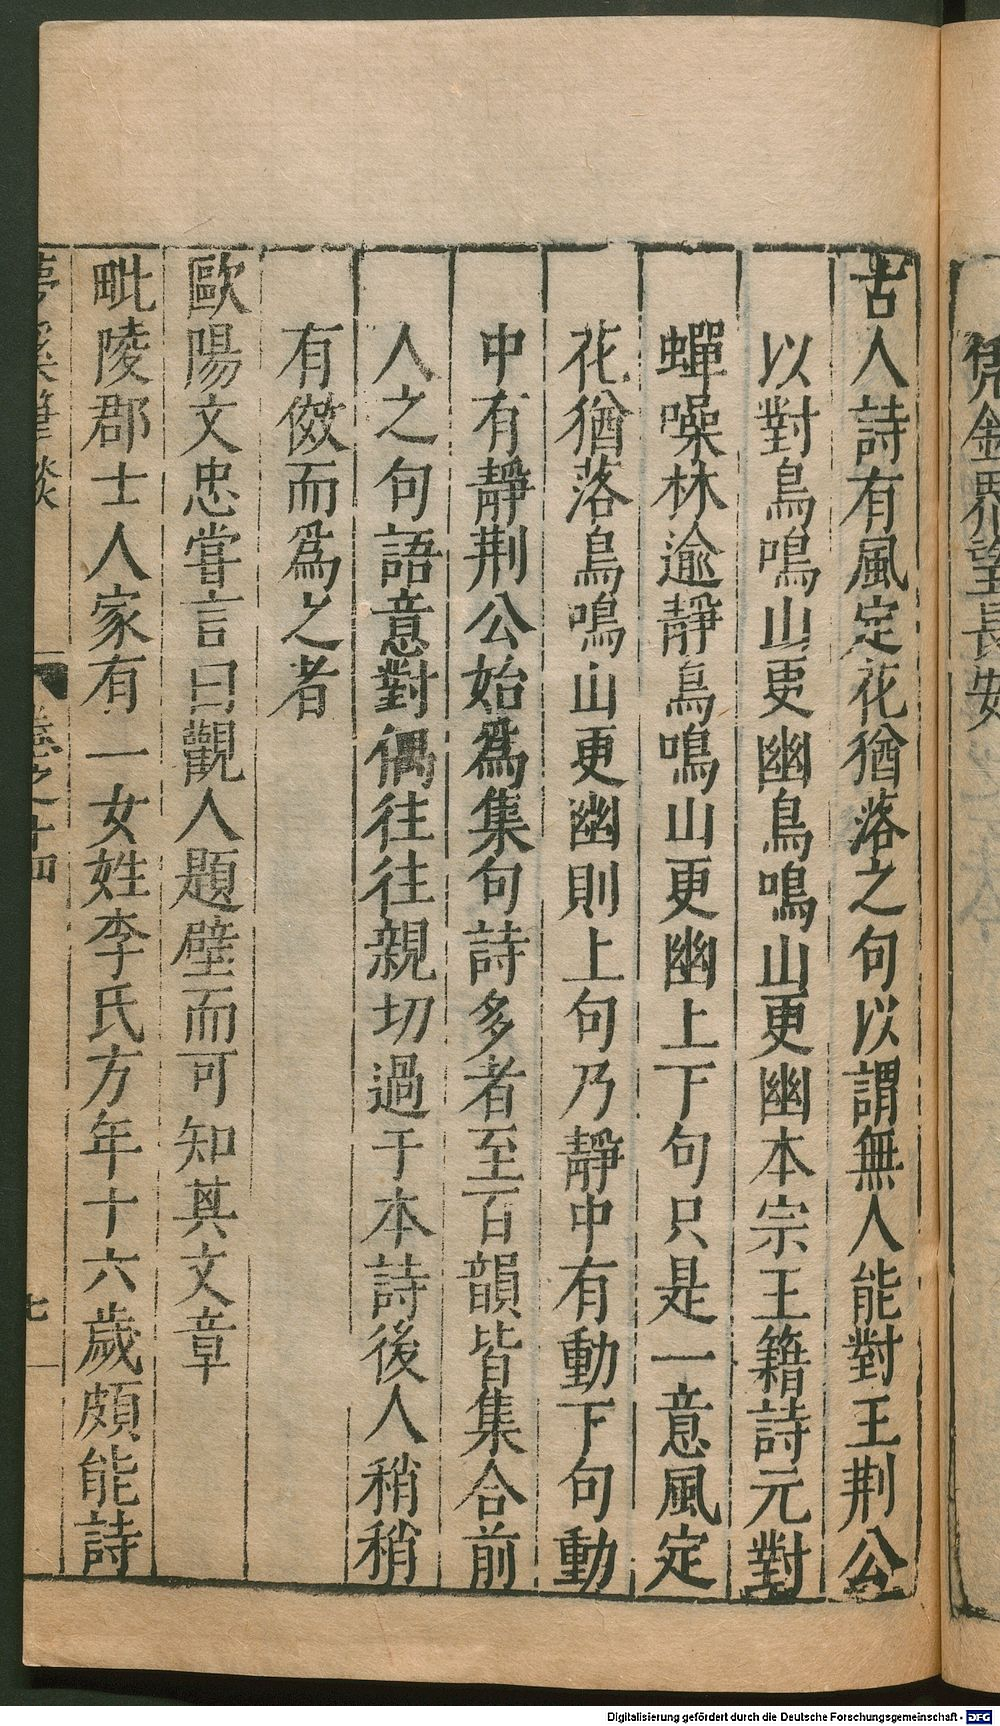 古人詩有風定花猶落之句以謂無人能對王荆公
以對鳥鳴山更幽鳥鳴山更幽本宗王籍詩元對
蟬噪林逾靜鳥鳴山更幽上下句只是一意風定
花猶落鳥鳴山更幽則上句乃靜中有動下句動
中有靜荆公始爲集句詩多者至百韻皆集合前
人之句語意對偶往往親切過于本詩後人稍稍
有倣而爲之者
歐陽文忠嘗言曰觀人題壁而可知其文章
毗陵郡士人家有一女姓李氏方年十六歲頗能詩
夢溪筆談 卷之十四 七
Digitalisierung gefördert durch die Deutsche Forschungsgemeinschaft - DFG